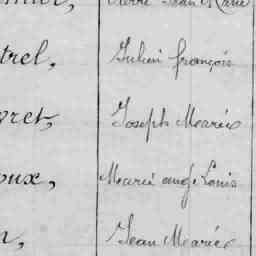 Pierre Jean Marie
trel, Julien françois
gret, Joseph Marie
oux, Marie ange Louis
n, Jean Marie